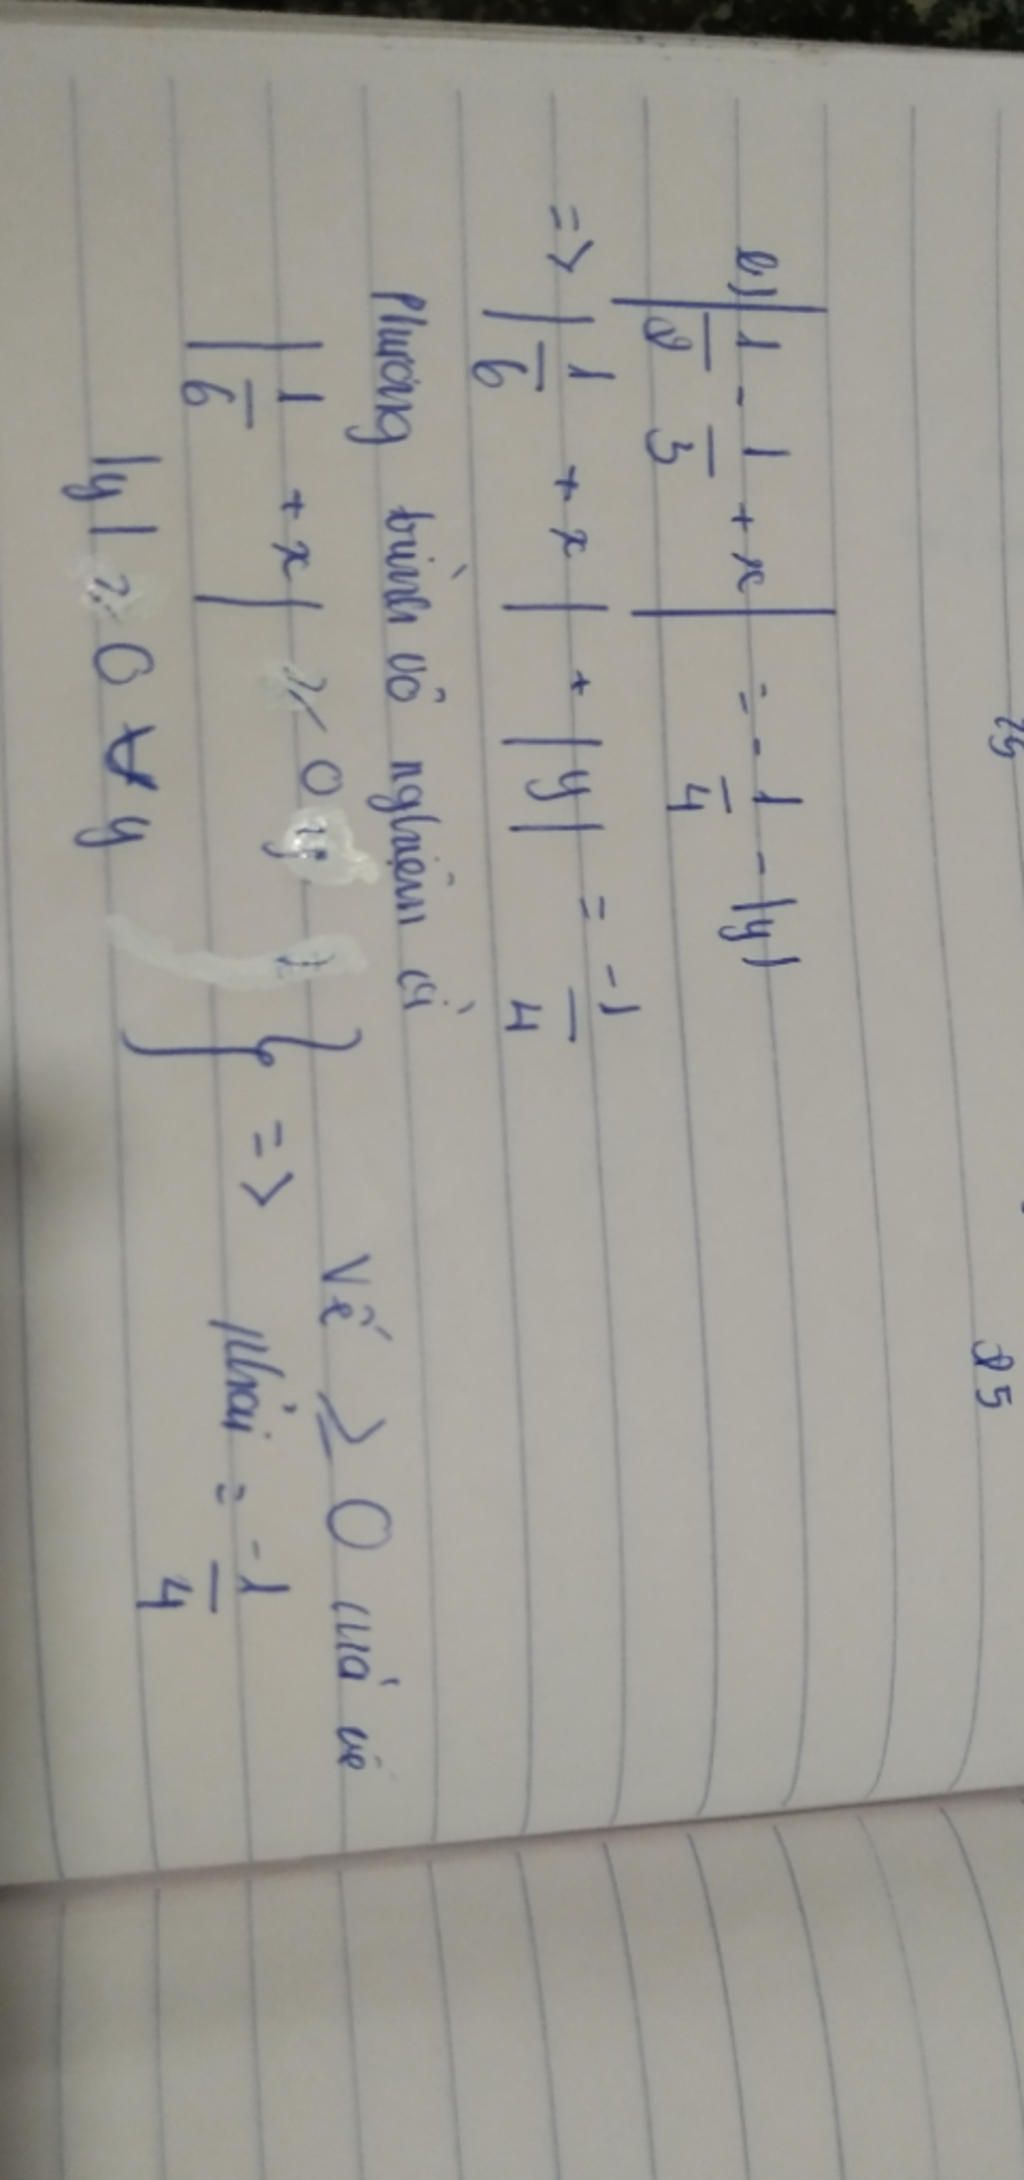 25
b) | 1/2 - 1/3 + x | = - 1/4 - |y|
=> | 1/6 + x | + |y| = -1/4
Phương trình vô nghiệm vì
| 1/6 + x | ≥ 0 } => Vế ≥ 0 mà vế
|y| ≥ 0 ∀ y phải = -1/4